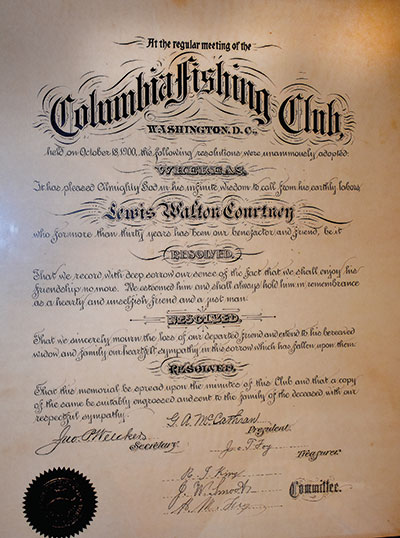 At the regular meeting of the
Columbia Fishing Club,
WASHINGTON, D.C.,
held on October 18, 1900, the following resolutions were unanimously adopted:
WHEREAS,
It has pleased Almighty God in his infinite wisdom to call from his earthly labors
Lewis Walton Courtney
who for more than thirty years has been our benefactor and friend, be it
RESOLVED,
That we record with deep sorrow our sense of the fact that we shall enjoy his
friendship no more. We esteemed him and shall always hold him in remembrance
as a hearty and unselfish friend and a just man.
RESOLVED,
That we sincerely mourn the loss of our departed friend and extend to his bereaved
widow and family our heartfelt sympathy in the sorrow which has fallen upon them.
RESOLVED,
That this memorial be spread upon the minutes of this Club and that a copy
of the same be suitably engrossed and sent to the family of the deceased with our
respectful sympathy.
G. A. McCathran
President
Secretary
Jno. T. Foy
Treasurer
Committee.